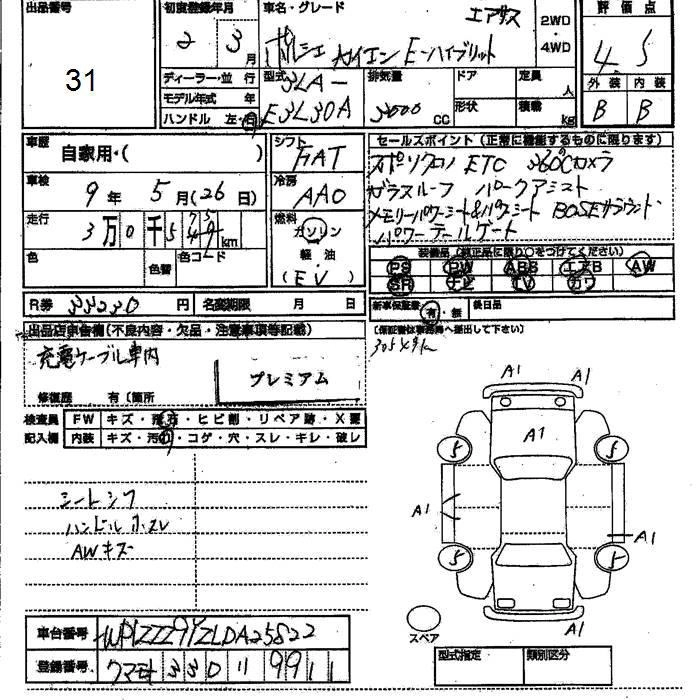 出品番号
31
初度登録年月
2 3月
車名・グレード
エアサス
ポルシェ カイエン E-ハイブリッド
2WD
・
4WD
評価点
4.5
外装 内装
B B
ディーラー・並行
モデル年式 年
ハンドル 左・右
型式
3LA-
E3L30A
排気量
3000 CC
ドア
形状
定員 人
積載 kg
車歴
自家用・( )
車検
9年 5月(26日)
走行
3万0千5 km
色
色替
色コード
シフト
FAT
冷房
AAC
燃料
ガソリン
軽油
(EV)
セールスポイント(正常に機能するものに限ります)
スポーツクロノ ETC 360°カメラ
ガラスルーフ パークアシスト
メモリーパワーシート&パワーシート BOSEサラウンド
パワーテールゲート
装備品(純正品に限り○をつけてください)
PS PW ABS エアB AW
SR ナビ TV カワ
R券 33230円 名変期限 月 日
新車保証書 有・無 後日品
(保証書は事務局へ提出して下さい)
出品店申告欄(不良内容・欠品・注意事項等記載)
充電ケーブル車内
プレミアム
修復歴 有(箇所
検査員 FW キズ・飛石・ヒビ割・リペア跡・X要
記入欄 内装 キズ・汚れ・コゲ・穴・スレ・キレ・破レ
シートシワ
ハンドルスレ
AWキズ
A1 A1
A1
5 5
A1 A1
5 5
A1
スペア
車台番号 WP1ZZZ9YZLDA25822
登録番号 クマモト 330 11 9911
型式指定 類別区分